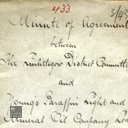 433.
Minute of Agreement
between
The Linlithgow District Committee
and
Youngs Paraffin Light and
Mineral Oil Company Ld